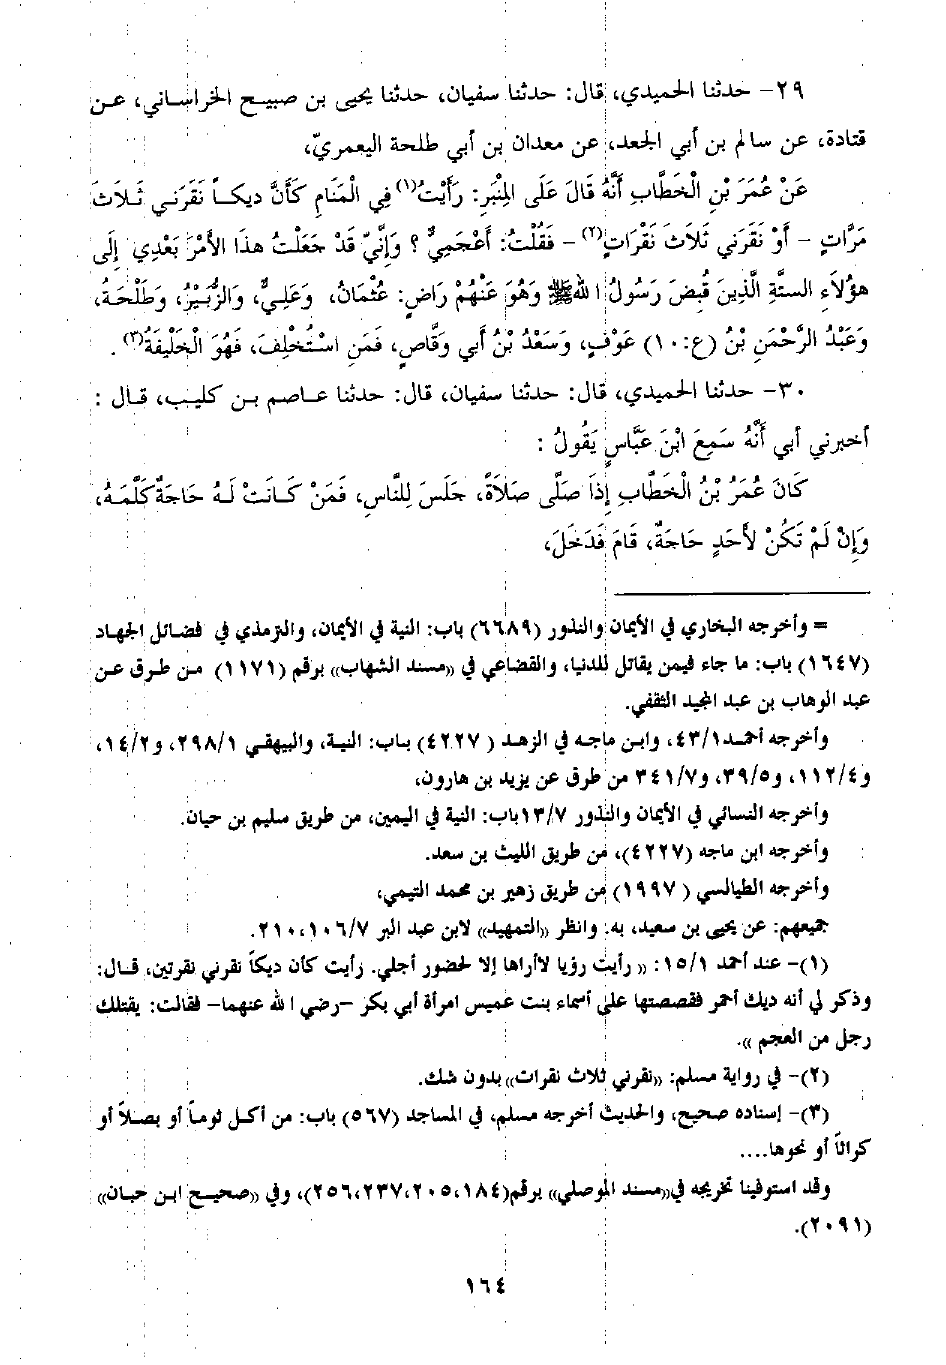 ٢٩- حدثنا الحميدي، قال: حدثنا سفيان، حدثنا يحيى بن صبيح الخراساني، عن
قتادة، عن سالم بن أبي الجعد، عن معدان بن أبي طلحة اليعمريّ،
عَنْ عُمَرَ بْنِ الْخَطَّابِ أَنَّهُ قَالَ عَلَى الْمِنْبَرِ: رَأَيْتُ(١) فِي الْمَنَامِ كَأَنَّ دِيكاً نَقَرَنِي ثَلاَثَ
مَرَّاتٍ - أَوْ نَقَرَنِي ثَلاَثَ نَقْرَاتٍ(٢) - فَقُلْتُ: أَعْجَمِيٌّ ؟ وَإِنِّي قَدْ جَعَلْتُ هذَا الأَمْرَ بَعْدِي إِلَى
هؤُلاَءِ السِّتَّةِ الَّذِينَ قُبِضَ رَسُولُ اللهِ ﷺ وَهُوَ عَنْهُمْ رَاضٍ: عُثْمَانُ، وَعَلِيٌّ، وَالزُّبَيْرُ، وَطَلْحَةُ،
وَعَبْدُ الرَّحْمَنِ بْنُ (ع:١٠) عَوْفٍ، وَسَعْدُ بْنُ أَبِي وَقَّاصٍ، فَمَنِ اسْتُخْلِفَ، فَهُوَ الْخَلِيفَةُ(٣) .
٣٠- حدثنا الحميدي، قال: حدثنا سفيان، قال: حدثنا عاصم بن كليب، قال :
أخبرني أبي أَنَّهُ سَمِعَ ابْنَ عَبَّاسٍ يَقُولُ :
كَانَ عُمَرُ بْنُ الْخَطَّابِ إِذَا صَلَّى صَلاَةً، جَلَسَ لِلنَّاسِ، فَمَنْ كَانَتْ لَهُ حَاجَةٌ كَلَّمَهُ،
وَإِنْ لَمْ تَكُنْ لأَحَدٍ حَاجَةٌ، قَامَ فَدَخَلَ،
= وأخرجه البخاري في الأيمان والنذور (٦٦٨٩) باب: النية في الأيمان، والترمذي في فضائل الجهاد
(١٦٤٧) باب: ما جاء فيمن يقاتل للدنيا، والقضاعي في «مسند الشهاب» برقم (١١٧١) من طرق عن
عبد الوهاب بن عبد المجيد الثقفي.
وأخرجه أحمد ٤٣/١، وابن ماجه في الزهد ( ٤٢٢٧) باب: النية، والبيهقي ٢٩٨/١، و١٤/٢،
و١١٢/٤، و٣٩/٥، و٣٤١/٧ من طرق عن يزيد بن هارون،
وأخرجه النسائي في الأيمان والنذور ١٣/٧باب: النية في اليمين، من طريق سليم بن حيان.
وأخرجه ابن ماجه (٤٢٢٧)، من طريق الليث بن سعد.
وأخرجه الطيالسي ( ١٩٩٧) من طريق زهير بن محمد التيمي،
جميعهم: عن يحيى بن سعيد، به. وانظر «التمهيد» لابن عبد البر ١٠٦/٧، ٢١٠.
(١)- عند أحمد ١٥/١: « رأيت رؤيا لاأراها إلا لحضور أجلي. رأيت كأن ديكاً نقرني نقرتين، قال:
وذكر لي أنه ديك أحمر فقصصتها على أسماء بنت عميس امرأة أبي بكر -رضي الله عنهما- فقالت: يقتلك
رجل من العجم ».
(٢)- في رواية مسلم: «نقرني ثلاث نقرات» بدون شك.
(٣)- إسناده صحيح، والحديث أخرجه مسلم، في المساجد (٥٦٧) باب: من أكل ثوماً أو بصلاً أو
كراثاً أو نحوها....
وقد استوفينا تخريجه في«مسند الموصلي» برقم(١٨٤، ٢٠٥، ٢٣٧، ٢٥٦)، وفي «صحيح ابن حبان»
(٢٠٩١).
١٦٤